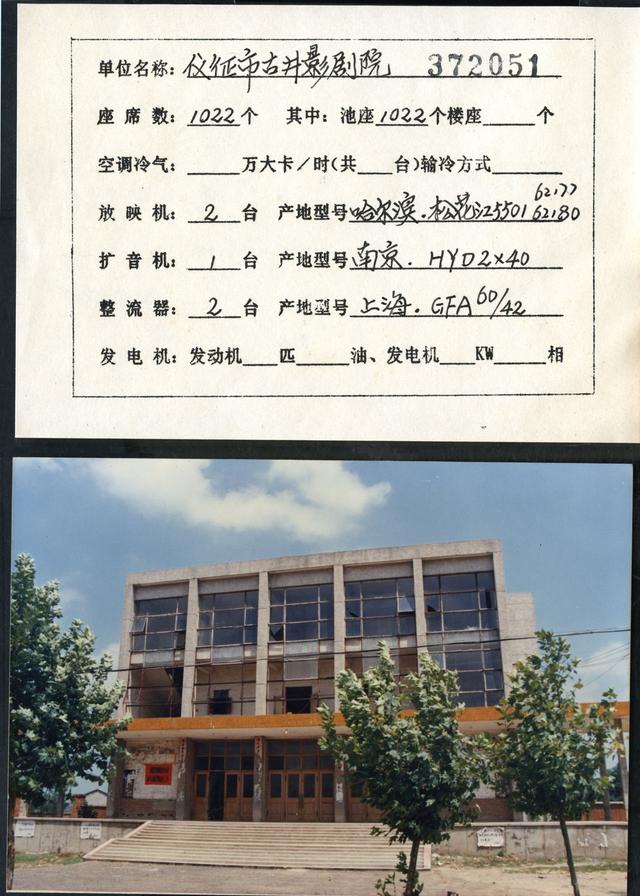 单位名称：仪征市古井影剧院 372051
座席数：1022个 其中：池座1022个楼座____个
空调冷气：____万大卡／时(共____台)输冷方式____
放映机：2台 产地型号哈尔滨·松花江5501 6277 6280
扩音机：1台 产地型号南京. HYD2×40
整流器：2台 产地型号上海. GFA 60/42
发电机：发动机____匹____油、发电机____KW____相